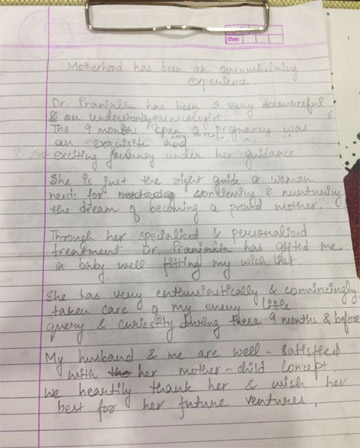 Date
Motherhood has been an overwhelming
experience
Dr. Pranjalin has been a very resourceful
& an understanding gynaecologist.
The 9 months span of pregnancy was
an exquisite and
exciting journey under her guidance
She is just the right guide a woman
needs for conceiving & nurturing
the dream of becoming a proud mother.
Through her specialised & personalised
treatment Dr. Pranjalin has gifted me
a baby well fitting my wish list
She has very enthusiastically & convincingly
taken care of my every little
query & curiosity during these 9 months & before
My husband & me are well-satisfied
with her mother-child concept
we heartily thank her & wish her
best for her future ventures.